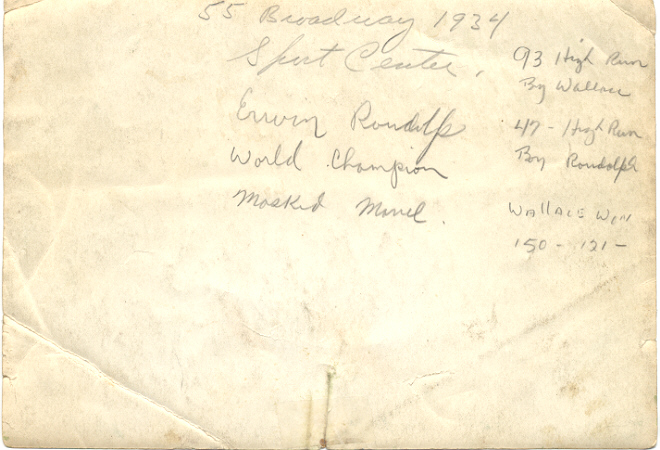 55 Broadway 1934
Sport Center,
Erwin Rondolph
World Champion
Masked Marvel.
93 High Run
By Wallace
47 - High Run
By Rondolph
WALLACE WIN
150 - 121 -